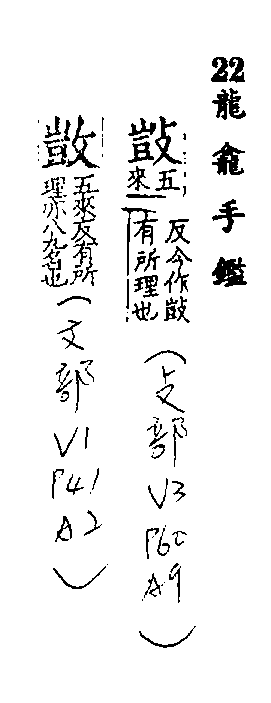 22龍龕手鑑
敳五來
反今作敳
有所理也
(攴部
V3
P60
A9)
敳
五來反有所
理亦八九名也
(文部
V1
P41
A2)